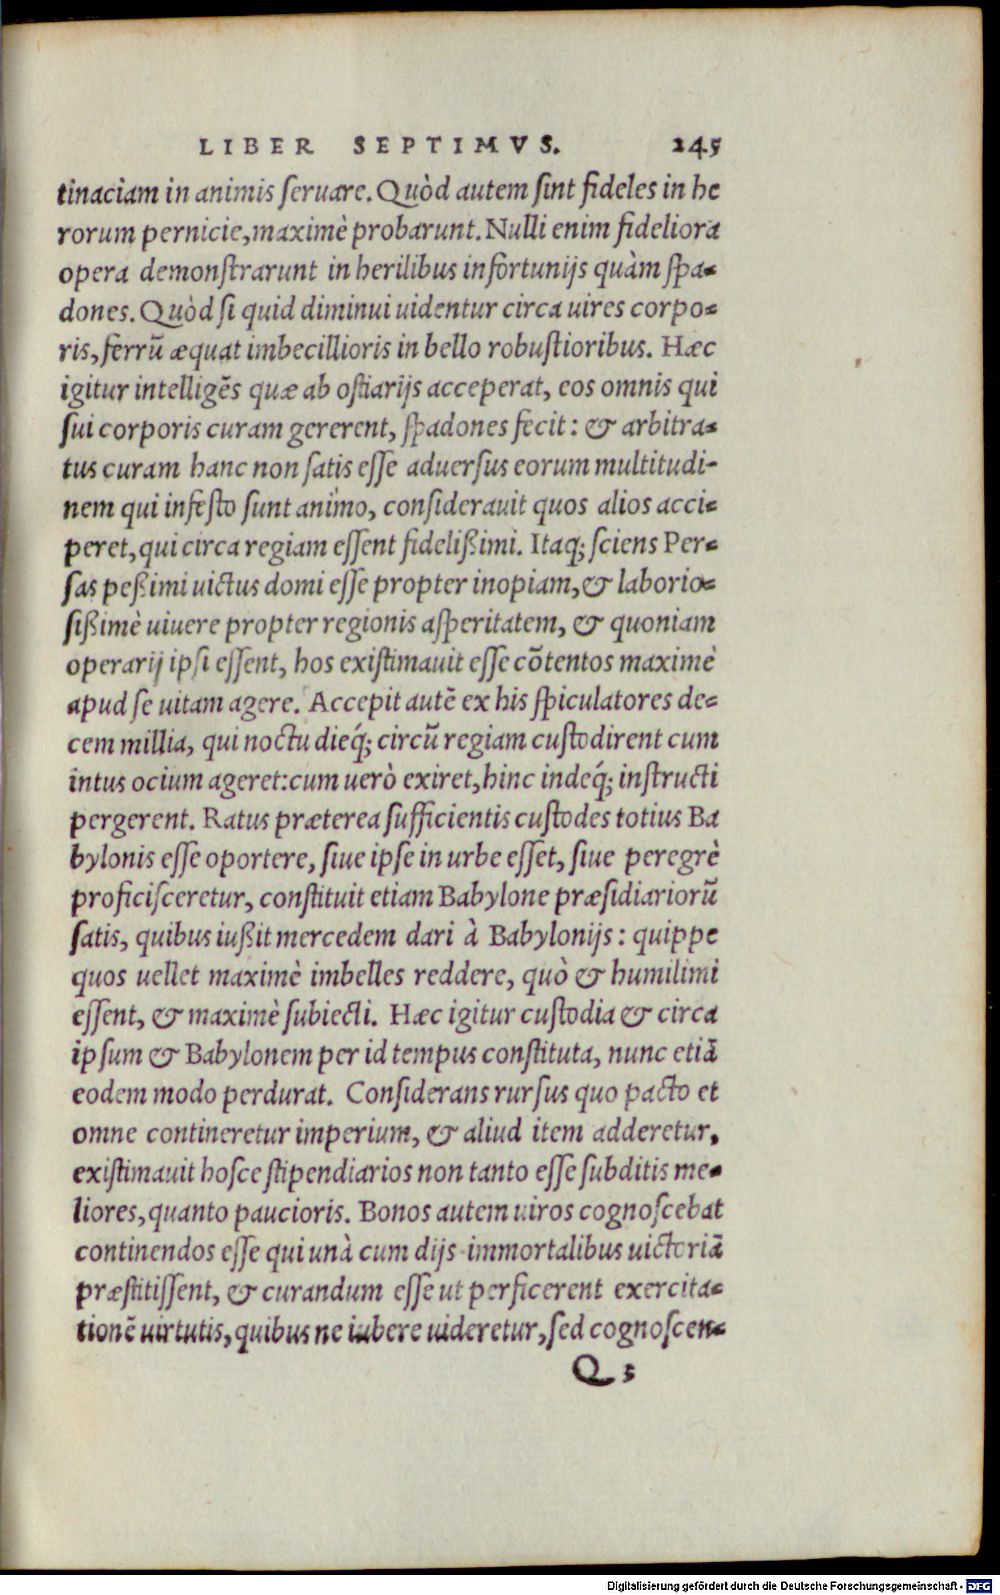 LIBER SEPTIMVS. 245
tinaciam in animis seruare. Quòd autem sint fideles in he
rorum pernicie, maximè probarunt. Nulli enim fideliora
opera demonstrarunt in herilibus infortunijs quàm spa-
dones. Quòd si quid diminui uidentur circa uires corpo-
ris, ferrū æquat imbecillioris in bello robustioribus. Hæc
igitur intelligẽs quæ ab ostiarijs acceperat, eos omnis qui
sui corporis curam gererent, spadones fecit: & arbitra-
tus curam hanc non satis esse aduersus eorum multitudi-
nem qui infesto sunt animo, considerauit quos alios acci-
peret, qui circa regiam essent fidelißimi. Itaq; sciens Per-
sas peßimi uictus domi esse propter inopiam, & laborio-
sißimè uiuere propter regionis asperitatem, & quoniam
operarij ipsi essent, hos existimauit esse cõtentos maximè
apud se uitam agere. Accepit autẽ ex his spiculatores de-
cem millia, qui noctu dieq́; circū regiam custodirent cum
intus ocium ageret: cum uerò exiret, hinc indeq́; instructi
pergerent. Ratus præterea sufficientis custodes totius Ba
bylonis esse oportere, siue ipse in urbe esset, siue peregrè
proficisceretur, constituit etiam Babylone præsidiariorū
satis, quibus iußit mercedem dari à Babylonijs: quippe
quos uellet maximè imbelles reddere, quò & humilimi
essent, & maximè subiecti. Hæc igitur custodia & circa
ipsum & Babylonem per id tempus constituta, nunc etiā
eodem modo perdurat. Considerans rursus quo pacto et
omne contineretur imperium, & aliud item adderetur,
existimauit hosce stipendiarios non tanto esse subditis me-
liores, quanto paucioris. Bonos autem uiros cognoscebat
continendos esse qui unà cum dijs immortalibus uictoriā
præstitissent, & curandum esse ut perficerent exercita-
tionẽ uirtutis, quibus ne iubere uideretur, sed cognoscen-
Q 5
Digitalisierung gefördert durch die Deutsche Forschungsgemeinschaft - DFG